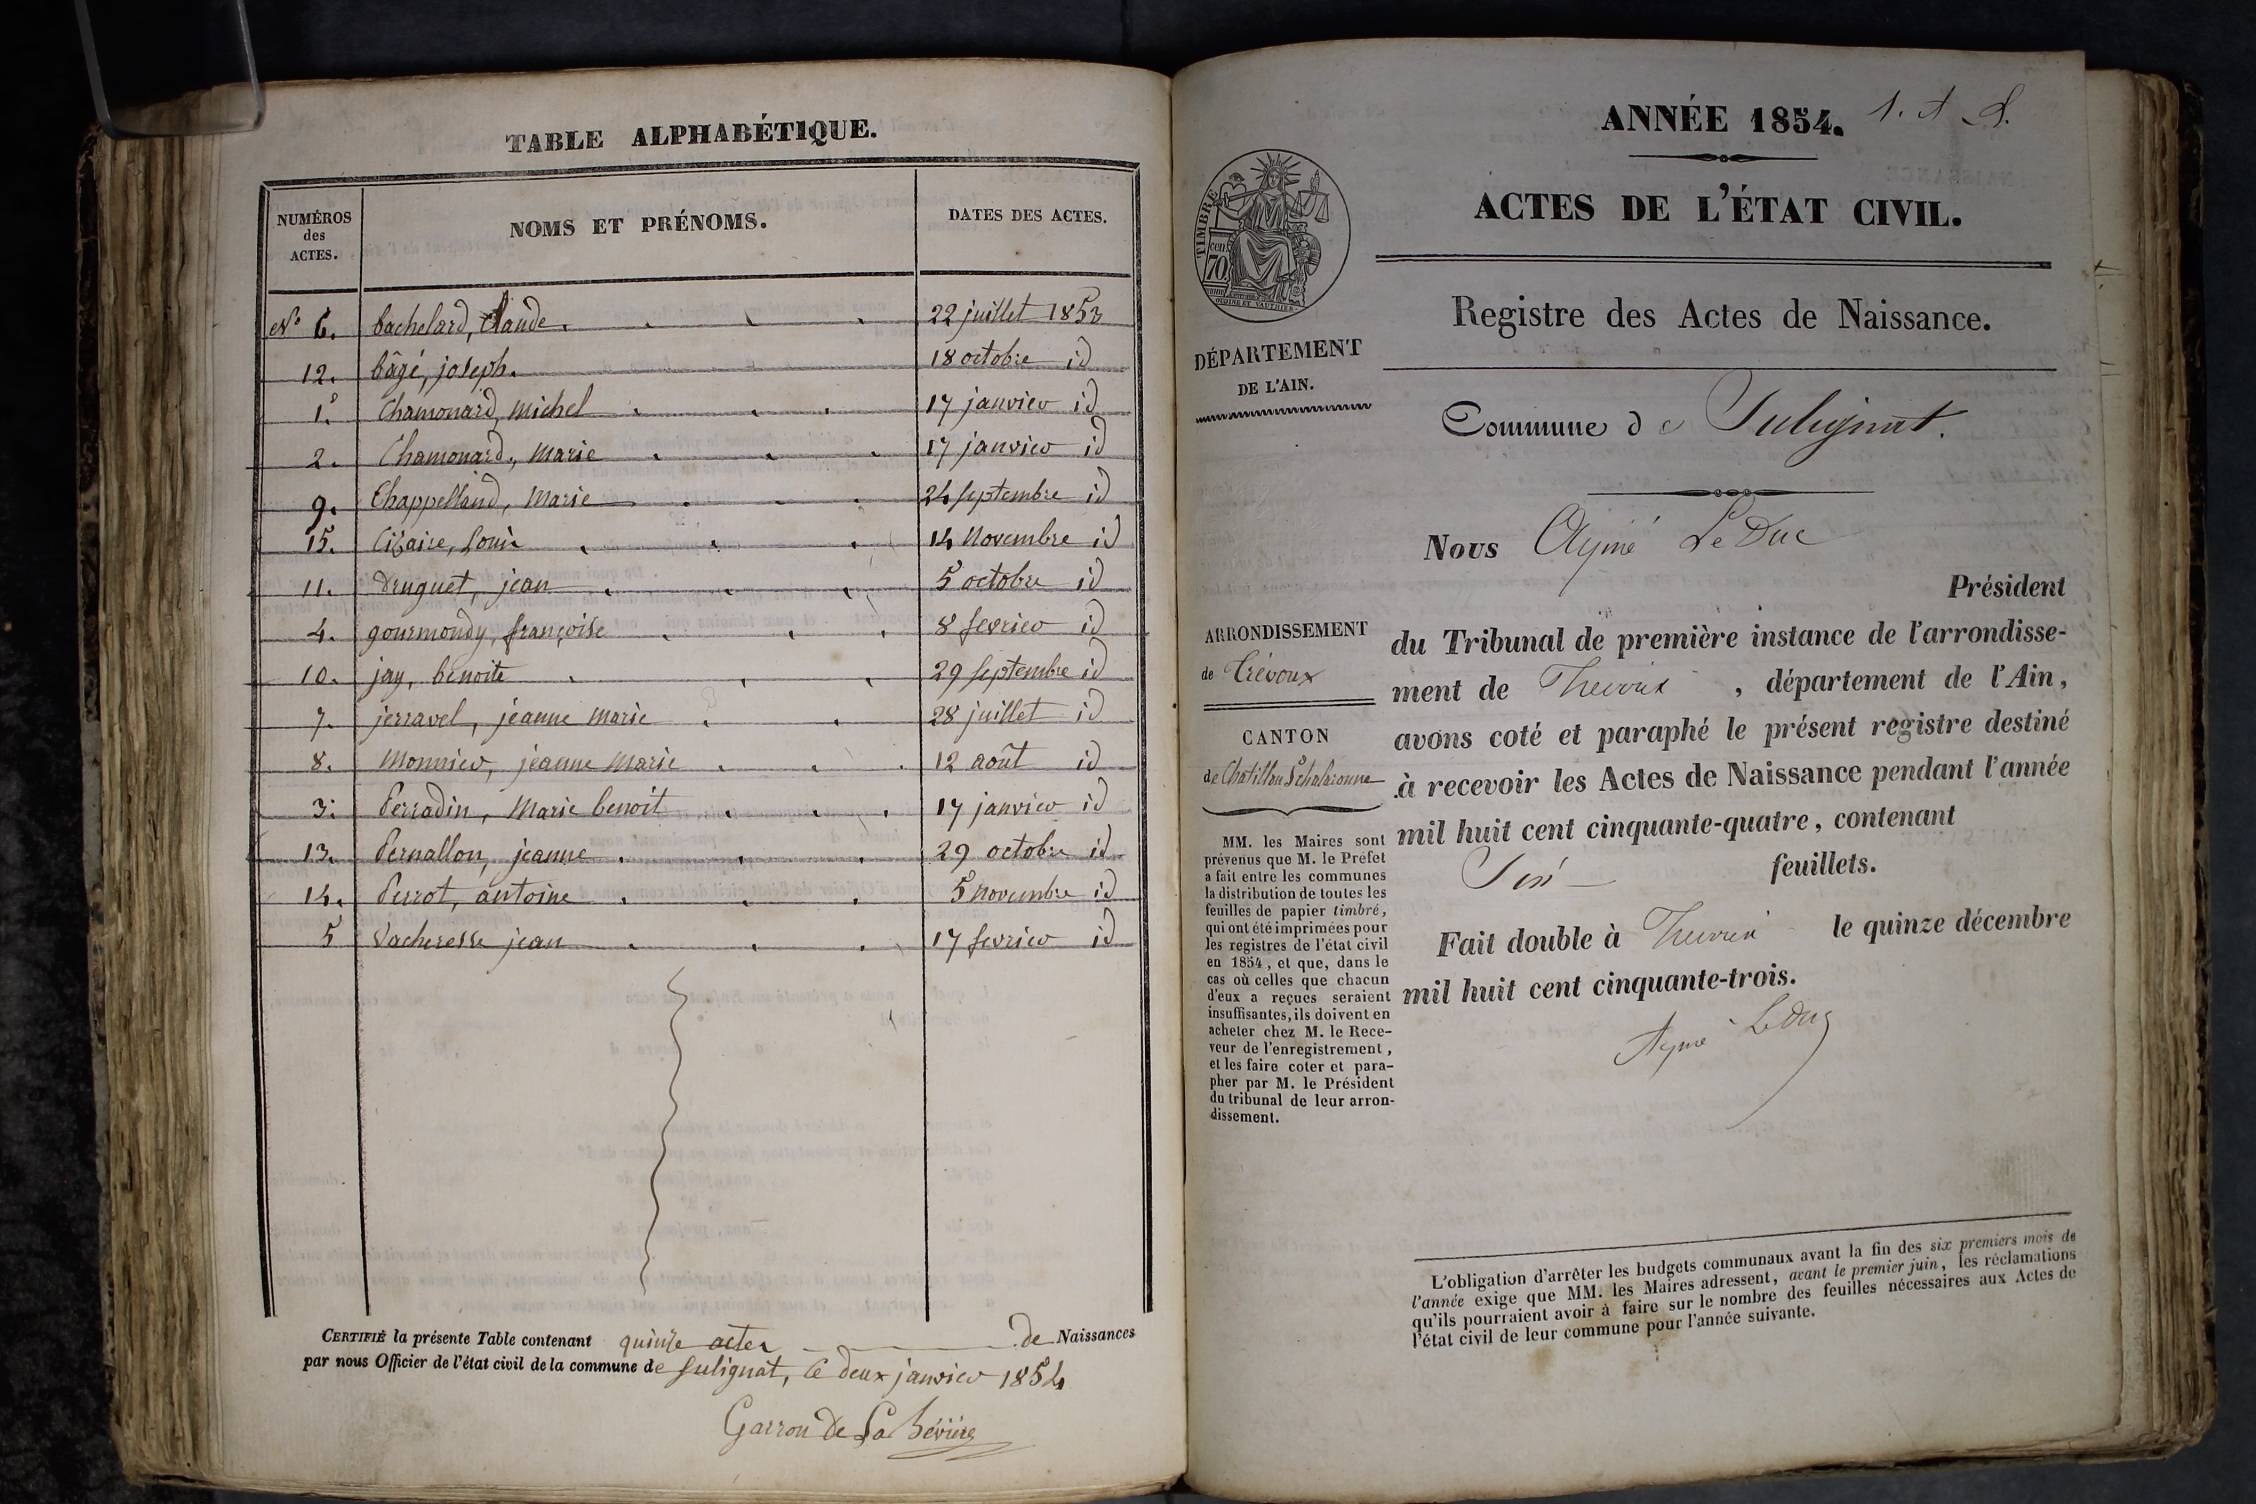 TABLE ALPHABÉTIQUE.
NUMÉROS des ACTES.
NOMS ET PRÉNOMS.
DATES DES ACTES.
N° 6. bachelard, Claude. 22 juillet 1853
12. bâgé, joseph. 18 octobre id
1. Chamonard, Michel 17 janvier id
2. Chamonard, Marie 17 janvier id
9. Chappelland, Marie 24 septembre id
15. Cizaire, Louis 14 Novembre id
11. Druguet, jean 5 octobre id
4. gourmondy, françoise 8 fevrier id
10. jay, benoite 29 septembre id
7. jerravel, jeanne Marie 28 juillet id
8. Monnier, jeanne Marie 12 août id
3. Perradin, Marie benoit 17 janvier id
13. Pernallon, jeanne 29 octobre id
14. Perrot, antoine 5 novembre id
5 Vacheresse jean 17 fevrier id
CERTIFIÉ la présente Table contenant quinze actes de Naissances
par nous Officier de l'état civil de la commune de Sulignat, le deux janvier 1854
Garron de La Bévière
ANNÉE 1854.
ACTES DE L'ÉTAT CIVIL.
TIMBRE
70
cen.
Registre des Actes de Naissance.
DÉPARTEMENT
DE L'AIN.
Commune de Sulignat.
Nous Aymé LeDuc
Président
ARRONDISSEMENT
de Trévoux
du Tribunal de première instance de l'arrondisse-
ment de Trevoux, département de l'Ain,
avons coté et paraphé le présent registre destiné
à recevoir les Actes de Naissance pendant l'année
mil huit cent cinquante-quatre, contenant
Six feuillets.
Fait double à Trevoux le quinze décembre
mil huit cent cinquante-trois.
Aymé LeDuc
CANTON
de Chatillon S Chalaronne
MM. les Maires sont
prévenus que M. le Préfet
a fait entre les communes
la distribution de toutes les
feuilles de papier timbré,
qui ont été imprimées pour
les registres de l'état civil
en 1854, et que, dans le
cas où celles que chacun
d'eux a reçues seraient
insuffisantes, ils doivent en
acheter chez M. le Rece-
veur de l'enregistrement,
et les faire coter et para-
pher par M. le Président
du tribunal de leur arron-
dissement.
L'obligation d'arrêter les budgets communaux avant la fin des six premiers mois de
l'année exige que MM. les Maires adressent, avant le premier juin, les réclamations
qu'ils pourraient avoir à faire sur le nombre des feuilles nécessaires aux Actes de
l'état civil de leur commune pour l'année suivante.